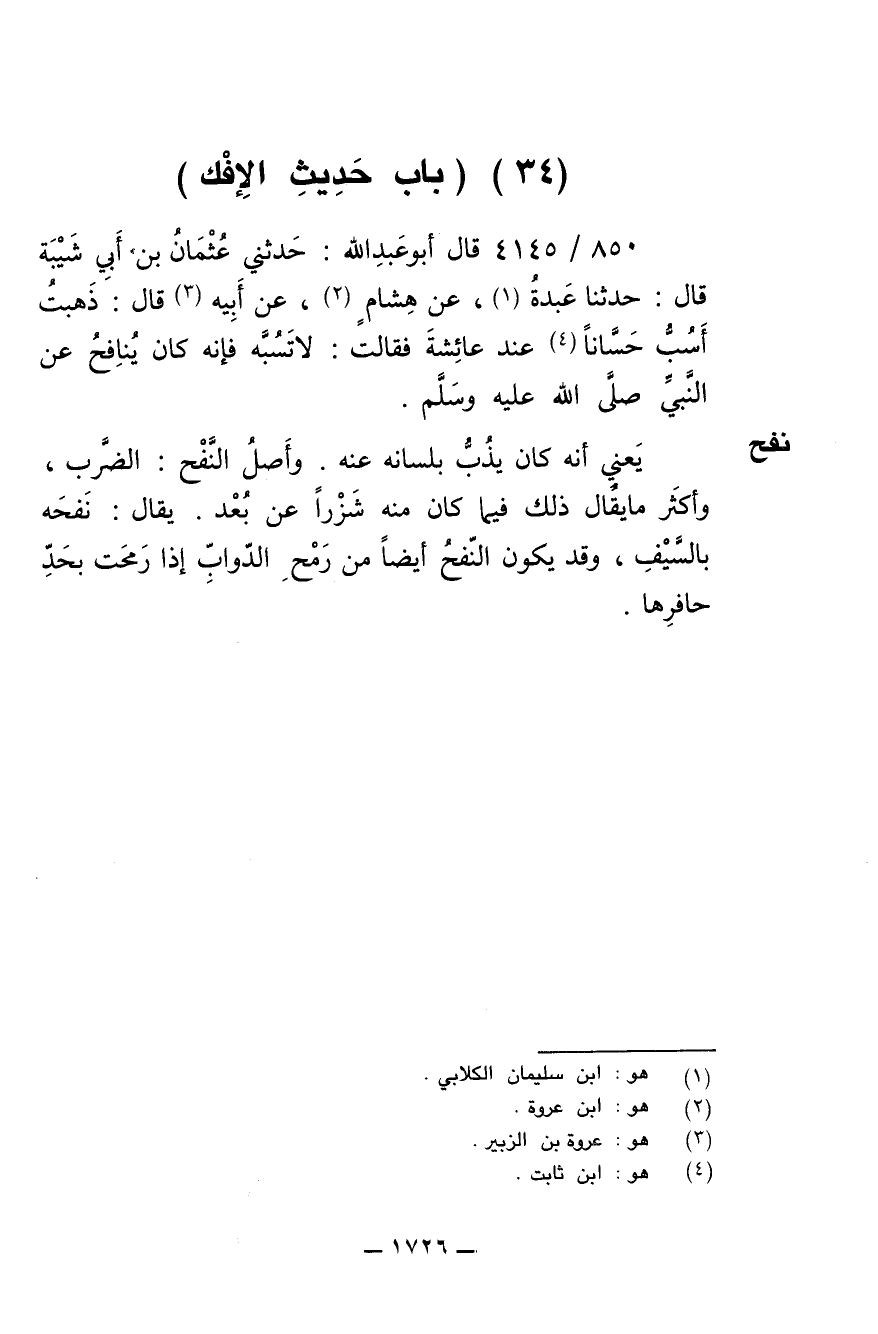 (٣٤) (باب حَدِيثِ الإِفْك)
٨٥٠ / ٤١٤٥ قال أبوعَبدِالله : حَدثني عُثْمَانُ بن أَبِي شَيْبَة
قال : حدثنا عَبدةُ (١) ، عن هِشامٍ (٢) ، عن أَبِيه (٣) قال : ذَهبتُ
أَسُبُّ حَسَّاناً (٤) عند عائِشةَ فقالت : لاتَسُبَّه فإنه كان يُنافِحُ عن
النَّبيِّ صلَّى الله عليه وسَلَّم .
نفح
يَعني أنه كان يذُبُّ بلسانه عنه . وأَصلُ النَّفْح : الضَّرب ،
وأكثَر مايقُال ذلك فيما كان منه شَزْراً عن بُعْد . يقال : نَفحَه
بالسَّيْفِ ، وقد يكون النّفحُ أيضاً من رَمْحِ الدّوابِّ إذا رَمحَت بحَدِّ
حافرِها .
(١) هو : ابن سليمان الكلابي .
(٢) هو : ابن عروة .
(٣) هو : عروة بن الزبير .
(٤) هو : ابن ثابت .
— ١٧٢٦ —